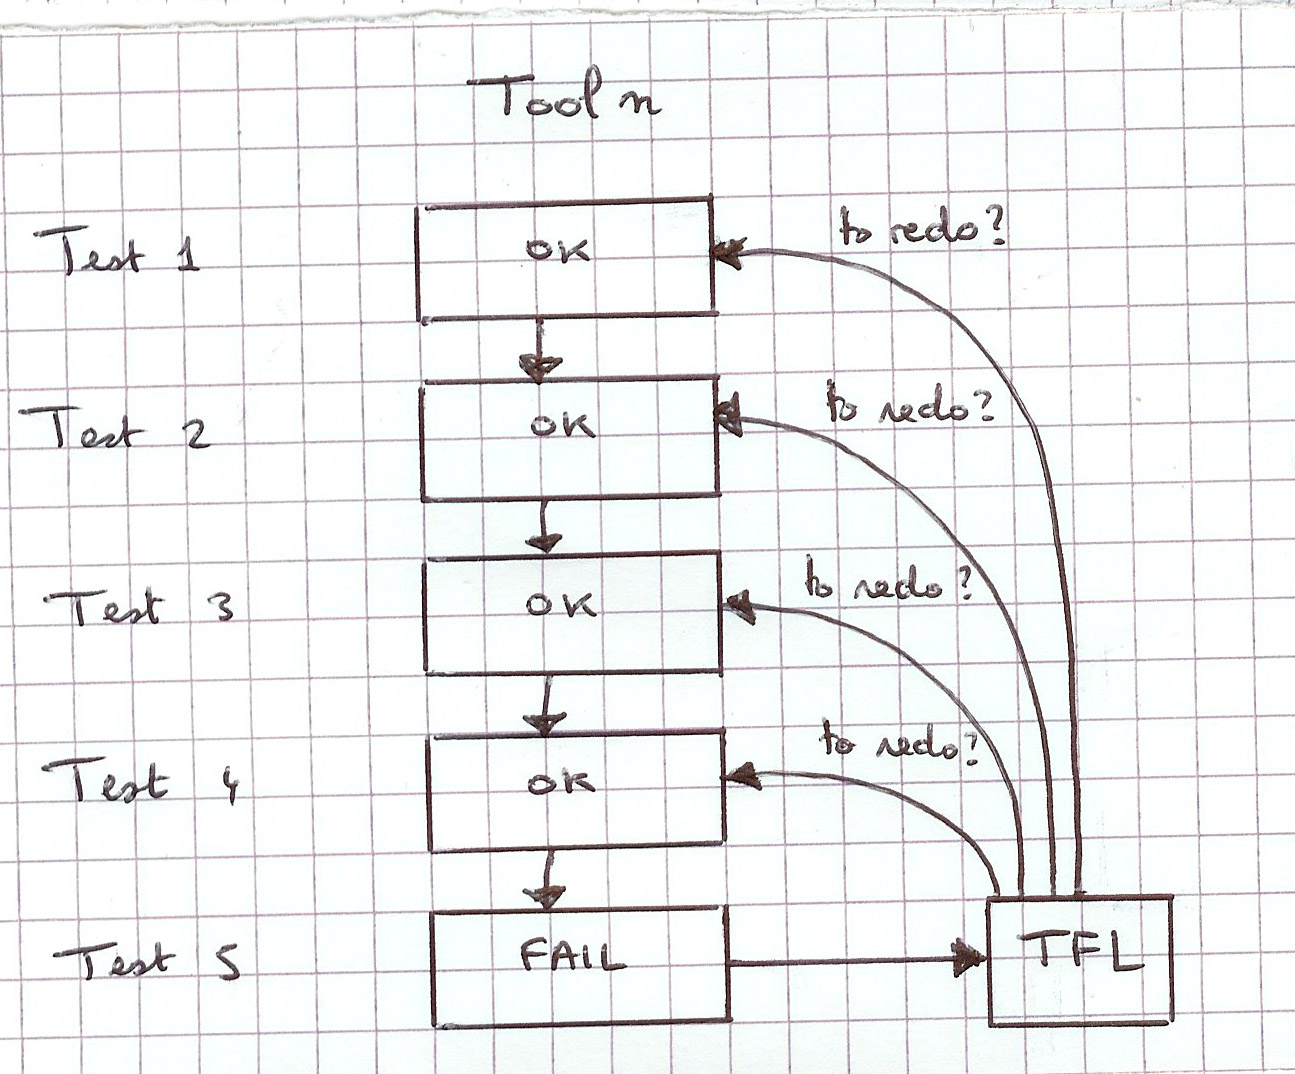 Tool n
to redo?
Test 1
OK
to redo?
Test 2
OK
to redo?
Test 3
OK
to redo?
Test 4
OK
Test 5
FAIL
TFL